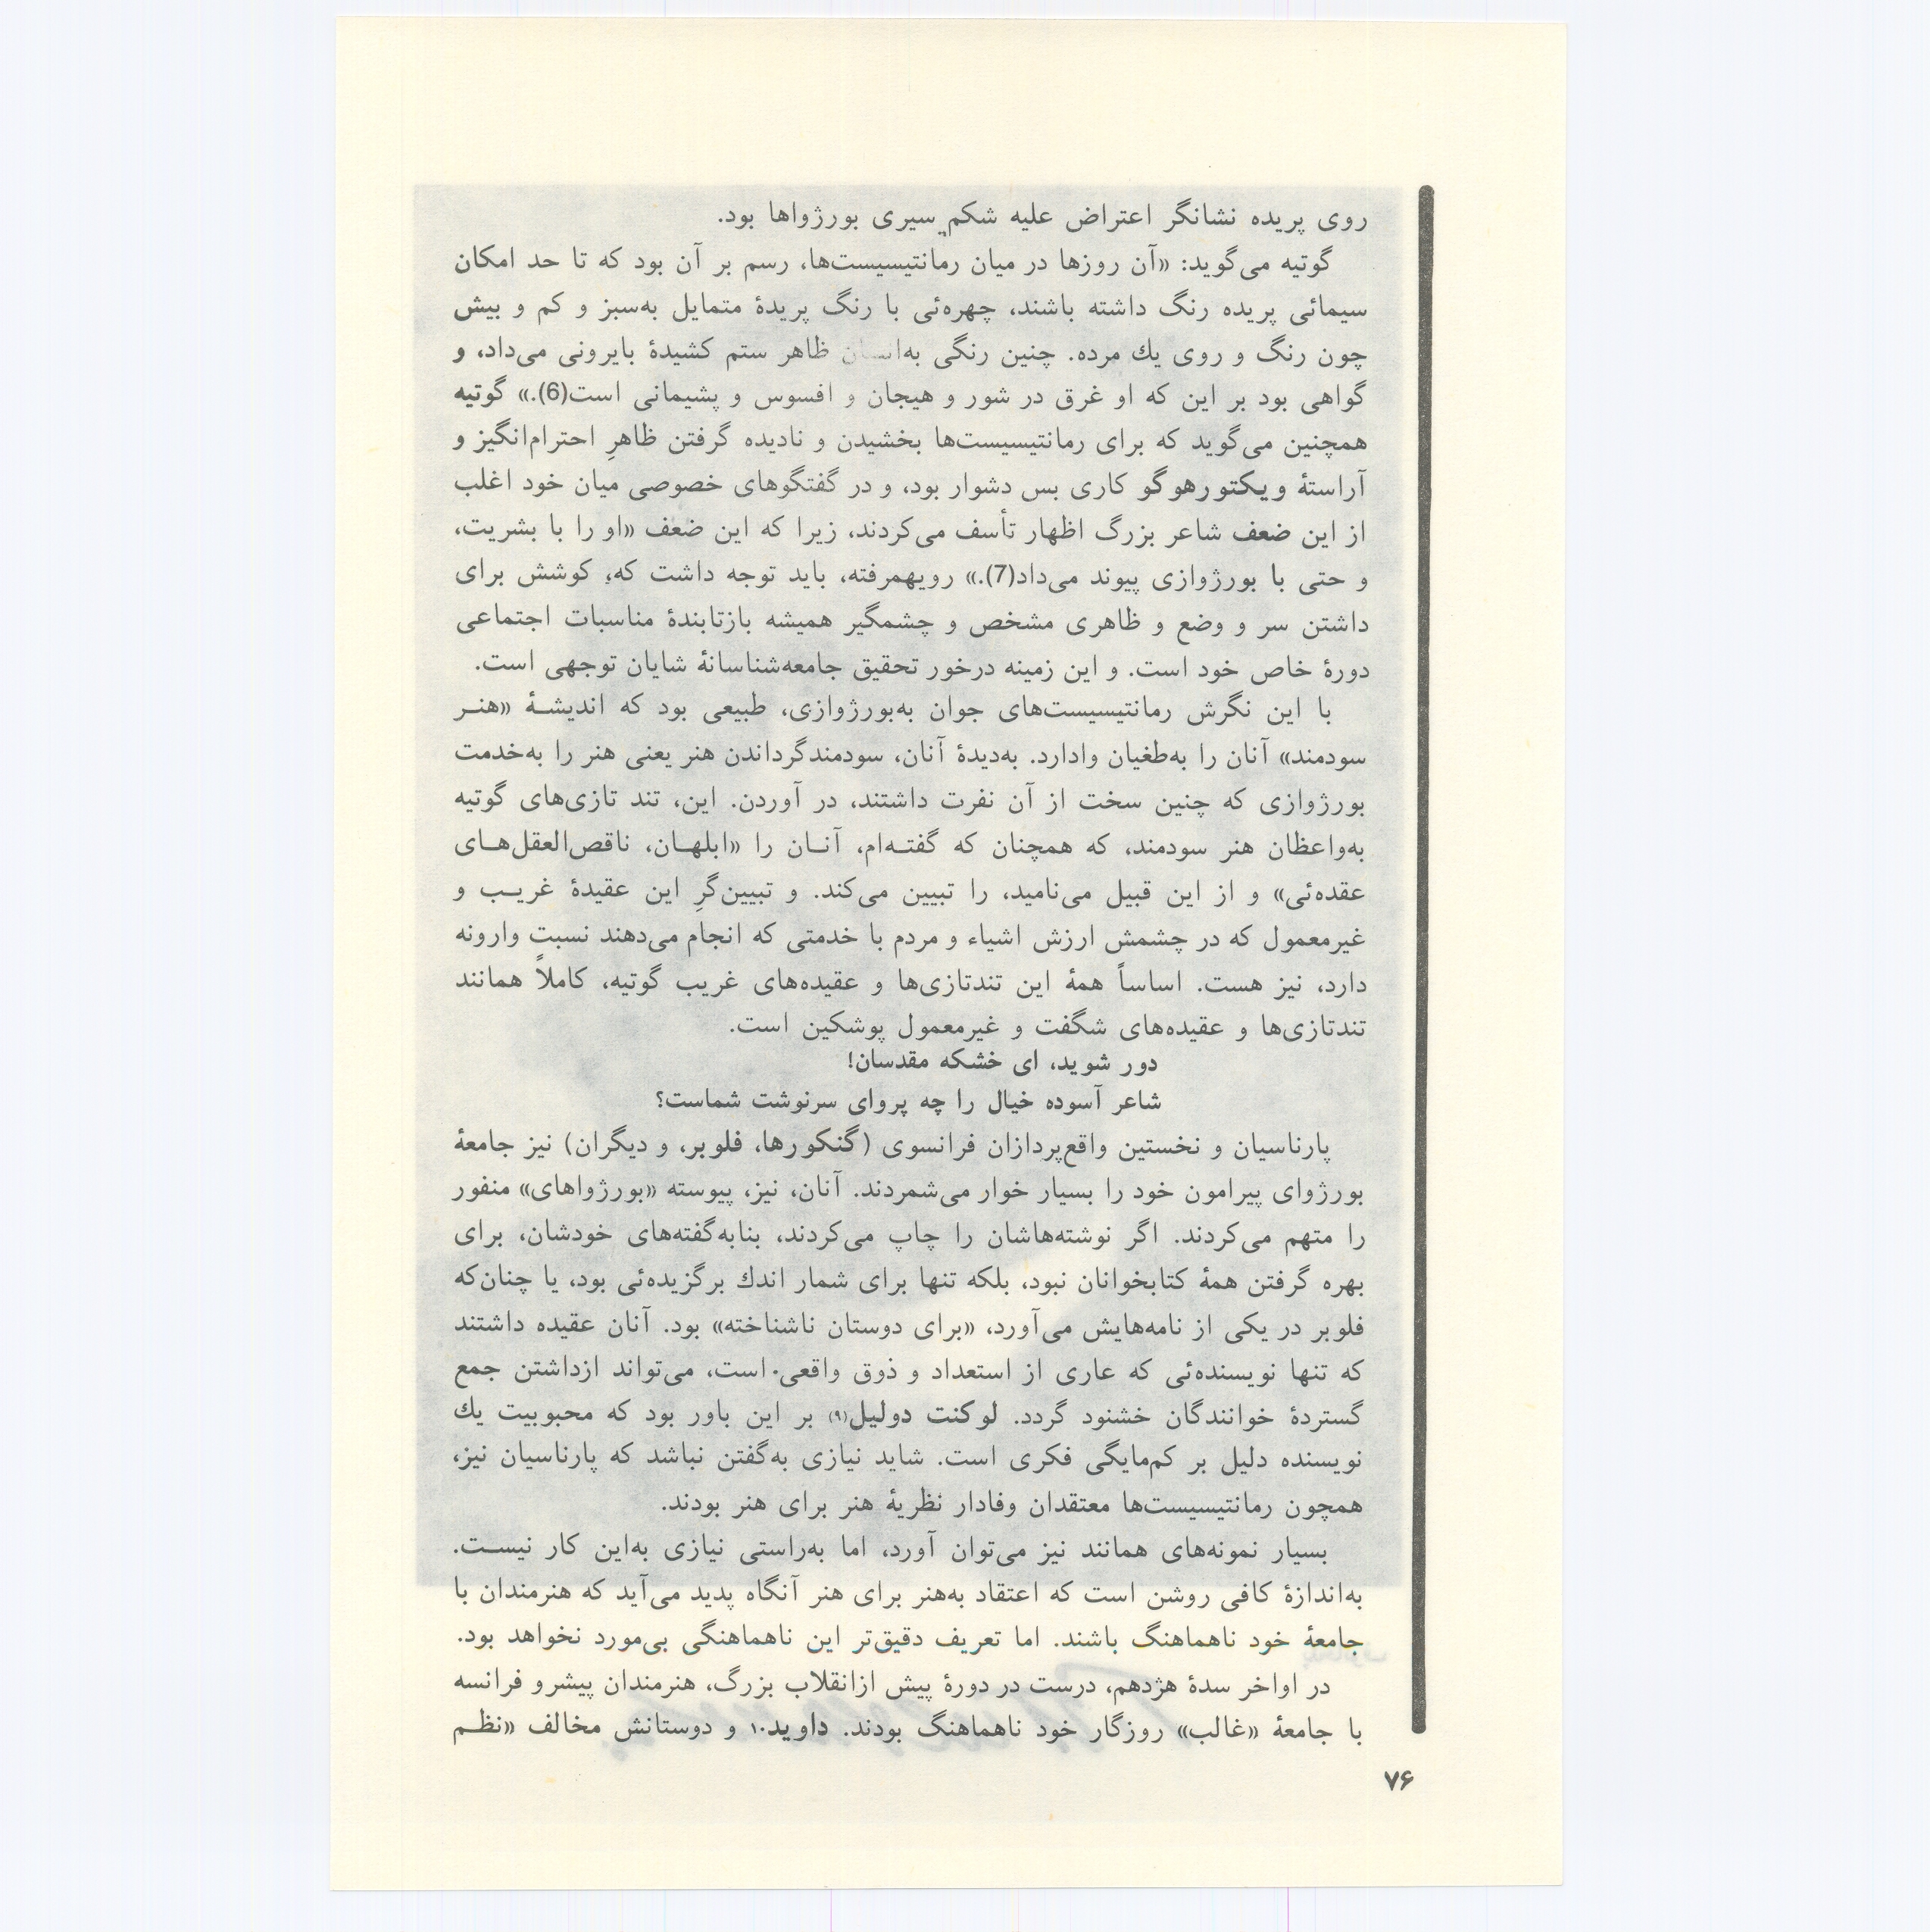 روی پریده نشانگر اعتراض علیه شکم سیری بورژواها بود.
گوتیه می‌گوید: «آن روزها در میان رمانتیسیست‌ها، رسم بر آن بود که تا حد امکان
سیمائی پریده رنگ داشته باشند، چهره‌ئی با رنگ پریدهٔ متمایل به‌سبز و کم و بیش
چون رنگ و روی یك مرده. چنین رنگی به‌انسان ظاهر ستم کشیدهٔ بایرونی می‌داد، و
گواهی بود بر این که او غرق در شور و هیجان و افسوس و پشیمانی است(6).» گوتیه
همچنین می‌گوید که برای رمانتیسیست‌ها بخشیدن و نادیده گرفتن ظاهرِ احترام‌انگیز و
آراستهٔ ویکتورهوگو کاری بس دشوار بود، و در گفتگوهای خصوصی میان خود اغلب
از این ضعف شاعر بزرگ اظهار تأسف می‌کردند، زیرا که این ضعف «او را با بشریت،
و حتی با بورژوازی پیوند می‌داد(7).» رویهمرفته، باید توجه داشت که، کوشش برای
داشتن سر و وضع و ظاهری مشخص و چشمگیر همیشه بازتابندهٔ مناسبات اجتماعی
دورهٔ خاص خود است. و این زمینه درخور تحقیق جامعه‌شناسانهٔ شایان توجهی است.
با این نگرش رمانتیسیست‌های جوان به‌بورژوازی، طبیعی بود که اندیشـهٔ «هنـر
سودمند» آنان را به‌طغیان وادارد. به‌دیدهٔ آنان، سودمندگرداندن هنر یعنی هنر را به‌خدمت
بورژوازی که چنین سخت از آن نفرت داشتند، در آوردن. این، تند تازی‌های گوتیه
به‌واعظان هنر سودمند، که همچنان که گفتـه‌ام، آنـان را «ابلهـان، ناقص‌العقل‌هـای
عقده‌ئی» و از این قبیل می‌نامید، را تبیین می‌کند. و تبیین‌گرِ این عقیدهٔ غریـب و
غیرمعمول که در چشمش ارزش اشیاء و مردم با خدمتی که انجام می‌دهند نسبت وارونه
دارد، نیز هست. اساساً همهٔ این تندتازی‌ها و عقیده‌های غریب گوتیه، کاملاً همانند
تندتازی‌ها و عقیده‌های شگفت و غیرمعمول پوشکین است.
دور شوید، ای خشکه مقدسان!
شاعر آسوده خیال را چه پروای سرنوشت شماست؟
پارناسیان و نخستین واقع‌پردازان فرانسوی (گنکورها، فلوبر، و دیگران) نیز جامعهٔ
بورژوای پیرامون خود را بسیار خوار می‌شمردند. آنان، نیز، پیوسته «بورژواهای» منفور
را متهم می‌کردند. اگر نوشته‌هاشان را چاپ می‌کردند، بنابه‌گفته‌های خودشان، برای
بهره گرفتن همهٔ کتابخوانان نبود، بلکه تنها برای شمار اندك برگزیده‌ئی بود، یا چنان‌که
فلوبر در یکی از نامه‌هایش می‌آورد، «برای دوستان ناشناخته» بود. آنان عقیده داشتند
که تنها نویسنده‌ئی که عاری از استعداد و ذوق واقعی است، می‌تواند ازداشتن جمع
گستردهٔ خوانندگان خشنود گردد. لوکنت دولیل(۹) بر این باور بود که محبوبیت یك
نویسنده دلیل بر کم‌مایگی فکری است. شاید نیازی به‌گفتن نباشد که پارناسیان نیز،
همچون رمانتیسیست‌ها معتقدان وفادار نظریهٔ هنر برای هنر بودند.
بسیار نمونه‌های همانند نیز می‌توان آورد، اما به‌راستی نیازی به‌این کار نیسـت.
به‌اندازهٔ کافی روشن است که اعتقاد به‌هنر برای هنر آنگاه پدید می‌آید که هنرمندان با
جامعهٔ خود ناهماهنگ باشند. اما تعریف دقیق‌تر این ناهماهنگی بی‌مورد نخواهد بود.
در اواخر سدهٔ هژدهم، درست در دورهٔ پیش ازانقلاب بزرگ، هنرمندان پیشرو فرانسه
با جامعهٔ «غالب» روزگار خود ناهماهنگ بودند. داوید۱۰ و دوستانش مخالف «نظـم
۷۶